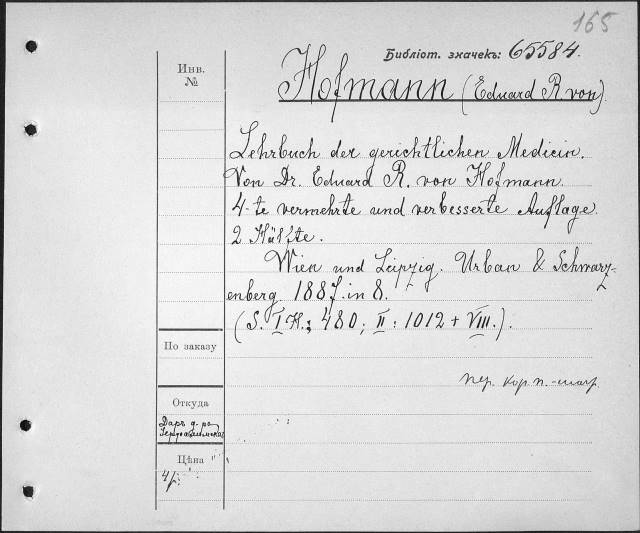 165
Библіот. значекъ: 65584.
Инв.
№
Hofmann (Eduard R. von).
Lehrbuch der gerichtlichen Medicin.
Von Dr. Eduard R. von Hofmann.
4-te vermehrte und verbesserte Auflage.
2 Hälfte.
Wien und Leipzig. Urban & Schwarz-
enberg. 1887. in 8.
(S. I H.: 480; II: 1012 + VIII.).
По заказу
пер. кор. п.
Откуда
Даръ д-ра
Цѣна